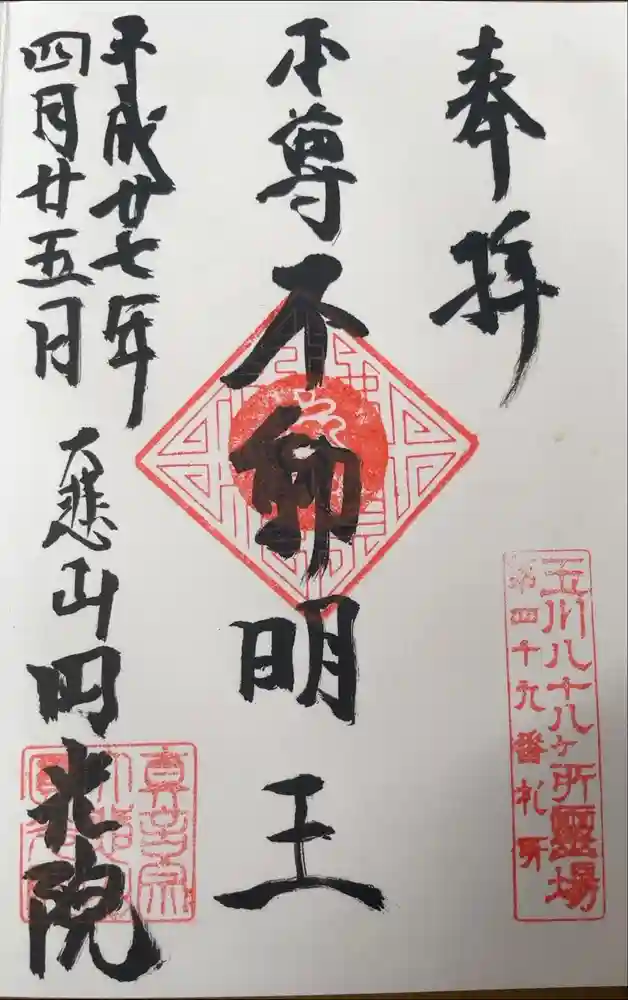 奉拝
玉川八十八ヶ所霊場
第四十九番札所
本尊不動明王
平成廿七年
四月廿五日
大悲山円光院
真言宗